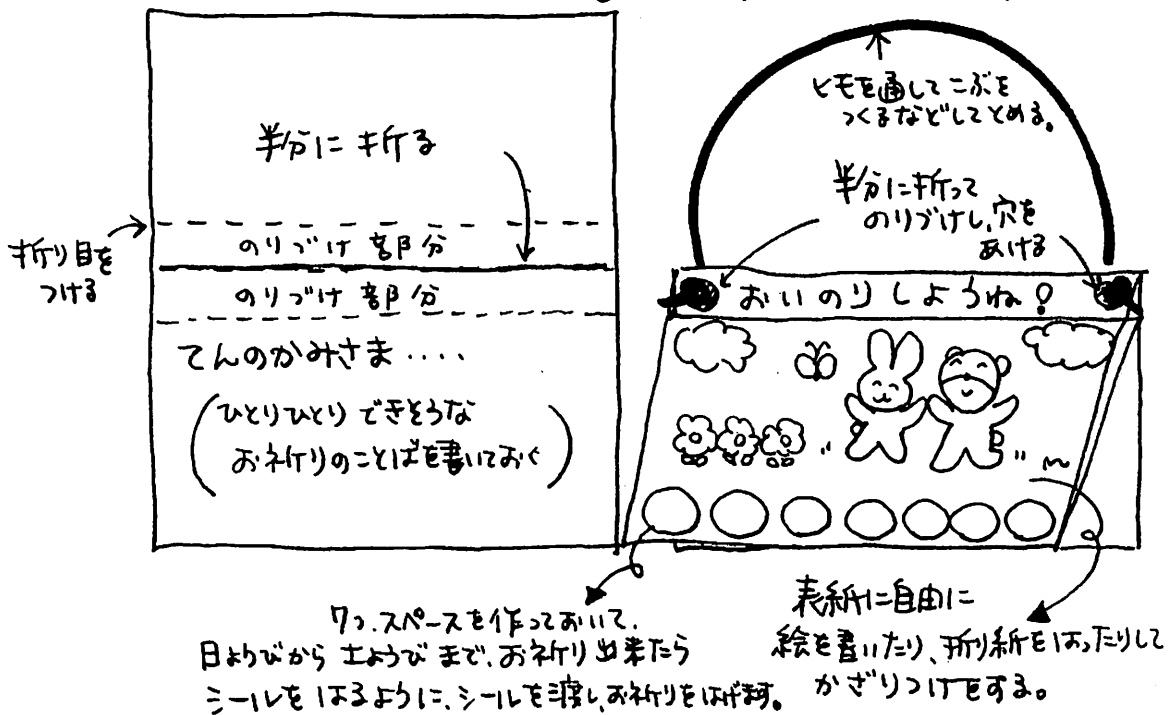 半分に折る
折り目を
つける
のりづけ部分
のりづけ部分
てんのかみさま・・・・
(ひとりひとりできそうな
お祈りのことばを書いておく)
ヒモを通してこぶを
つくるなどしてとめる。
半分に折って
のりづけし、穴を
あける
おいのりしようね!
7つ、スペースを作っておいて、
日ようびから土ようびまで、お祈り出来たら
シールをはるように、シールを渡し、お祈りをはげます。
表紙に自由に
絵を書いたり、折り紙をはったりして
かざりつけをする。